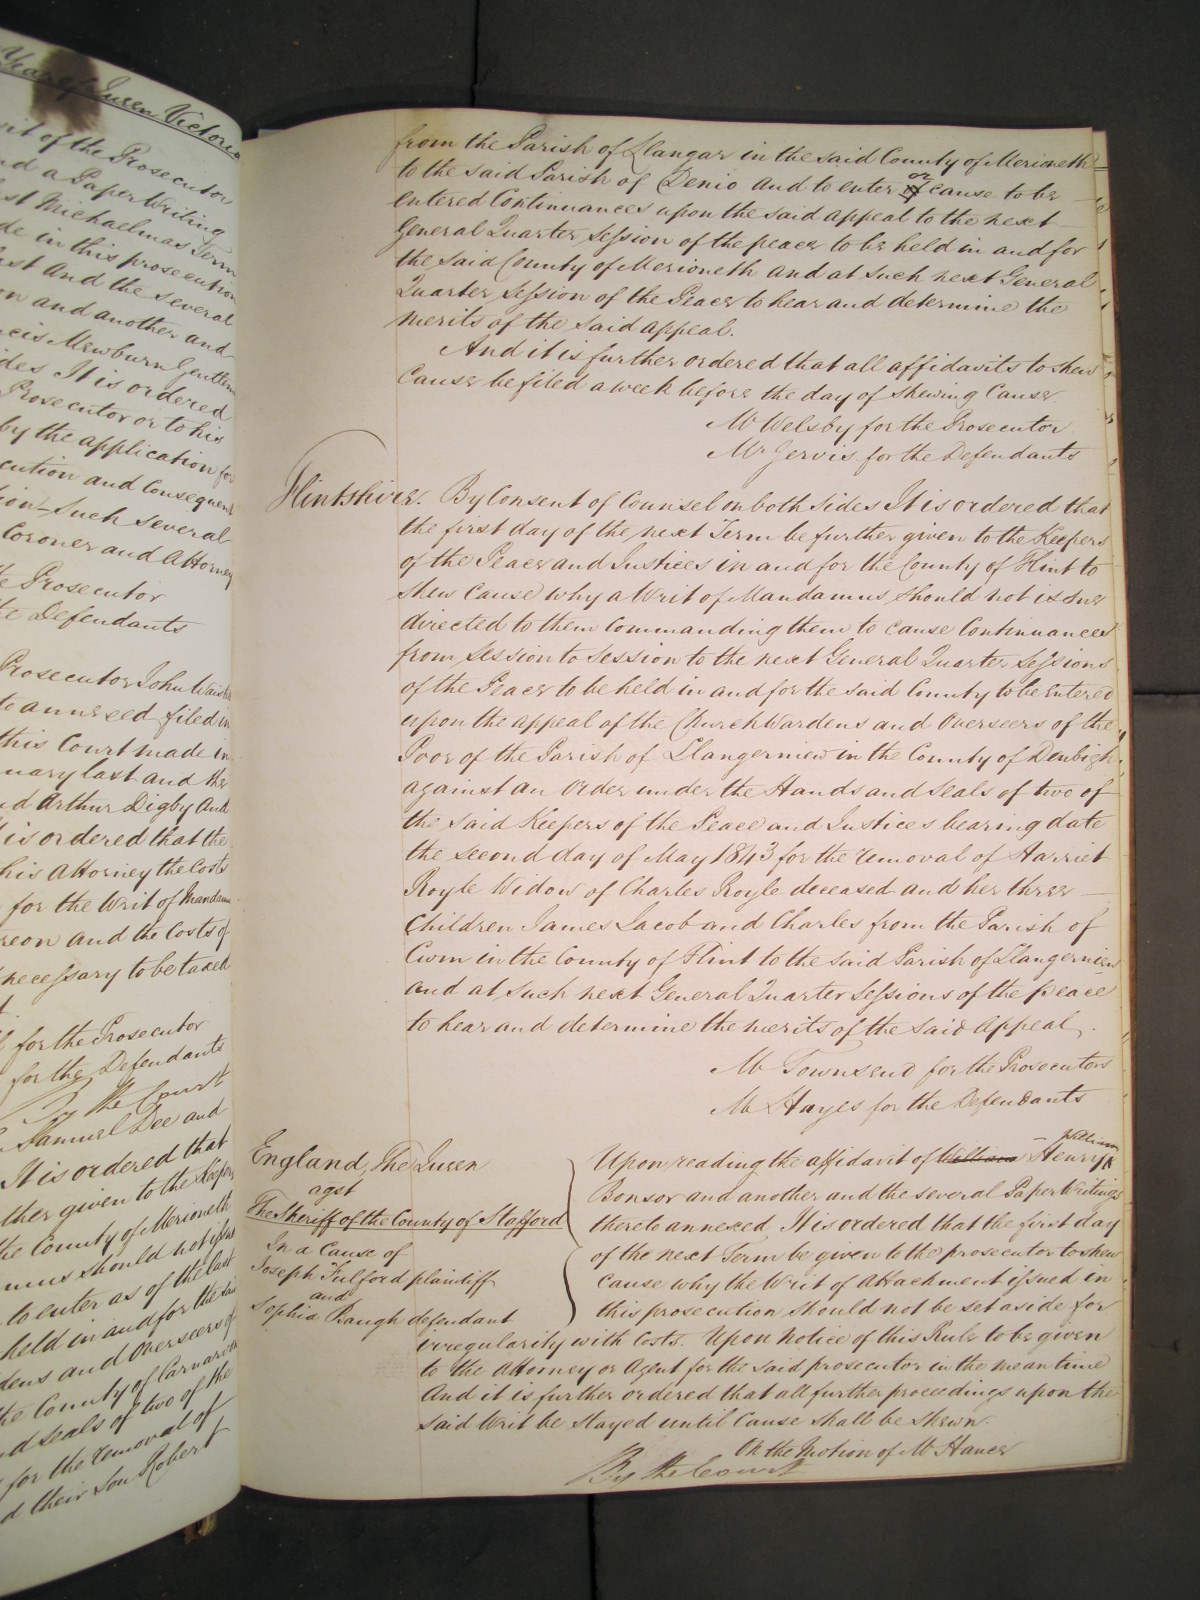 Year of Queen Victoria
of the Prosecutor
and a Paper Writing
last Michaelmas Term
in this prosecution
last And the several
and another and
Francis Mewburn Gentlem
sides It is ordered
Prosecutor or to his
by the application for
and Consequent
Such several
Coroner and Attorney
the Prosecutor
the Defendants
Prosecutor John
annexed filed in
this Court made in
last and the
and Arthur Digby and
is ordered that the
his Attorney the Costs
for the Writ of Mandam
and the Costs of
necessary to be taxed
for the Prosecutor
for the Defendants
By the Court
Samuel Dee and
It is ordered that
further given to the Keepers
the County of Merioneth
should not issue
to enter as of the last
held in and for the said
and Overseers of
the County of Carnarvon
and seals of two of the
for the removal of
and their Son Robert
from the Parish of Llangar in the said County of Merioneth
to the said Parish of Denio and to enter or cause to be
entered Continuances upon the said appeal to the next
General Quarter Session of the peace to be held in and for
the said County of Merioneth and at such next General
Quarter Session of the Peace to hear and determine the
merits of the said appeal.
And it is further ordered that all affidavits to shew
Cause be filed a week before the day of shewing Cause.
Mr Welsby for the Prosecutor
Mr Jervis for the Defendants
Flintshire. By Consent of Counsel on both sides It is ordered that
the first day of the next Term be further given to the Keepers
of the Peace and Justices in and for the County of Flint to
shew Cause why a Writ of Mandamus should not issue
directed to them Commanding them to cause Continuances
from Session to Session to the next General Quarter Sessions
of the Peace to be held in and for the said County to be entered
upon the appeal of the Church Wardens and Overseers of the
Poor of the Parish of Llangerniew in the County of Denbigh
against an Order under the Hands and Seals of two of
the said Keepers of the Peace and Justices bearing date
the second day of May 1843 for the removal of Harriet
Royle Widow of Charles Royle deceased and her three
Children James Jacob and Charles from the Parish of
Cwm in the County of Flint to the said Parish of Llangerniew
and at such next General Quarter Sessions of the peace
to hear and determine the merits of the said Appeal.
Mr Townsend for the Prosecutors
Mr Hayes for the Defendants
England, The Queen
agst
The Sheriff of the County of Stafford
In a Cause of
Joseph Fulford plaintiff
and
Sophia Baugh defendant
Upon reading the affidavit of William Henry William
Bonsor and another and the several Paper Writings
thereto annexed It is ordered that the first day
of the next Term be given to the prosecutor to shew
cause why the Writ of Attachment issued in
this prosecution should not be set aside for
irregularity with Costs. Upon Notice of this Rule to be given
to the Attorney or Agent for the said prosecutor in the mean time
And it is further ordered that all further proceedings upon the
said Writ be stayed until Cause shall be shewn.
On the Motion of Mr Hance
By the Court